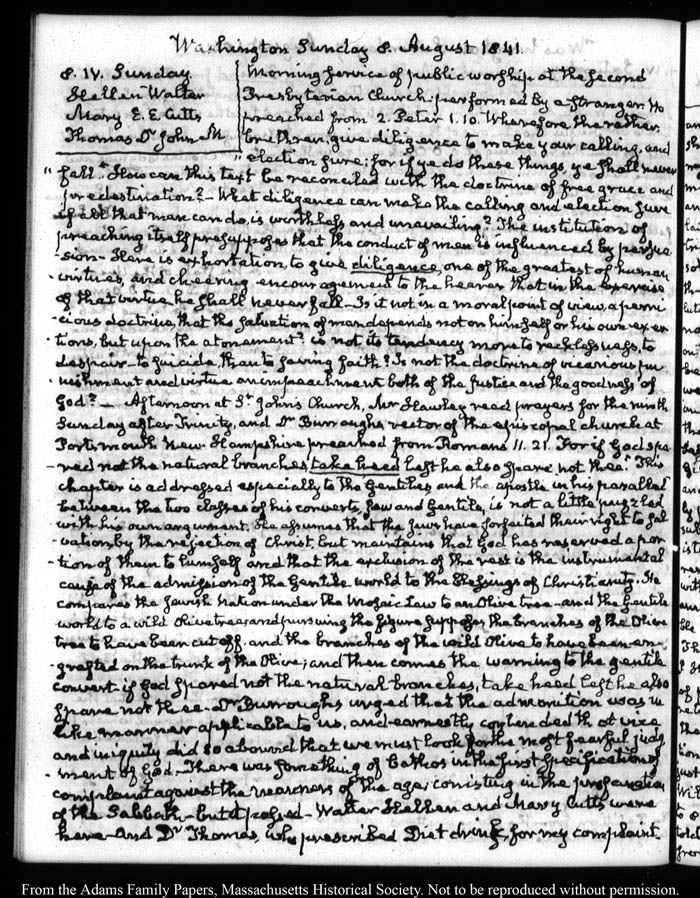 Washington Sunday 8. August 1841.
8. IV. Sunday.
Hellen Walter
Mary E. E. Cutts
Thomas Dr John M
Morning service of public worship at the Second
Presbyterian Church. performed by a stranger. He
preached from 2. Peter 1. 10. Wherefore the rather,
brethren, give diligence to make your calling, and
" election sure: for if ye do these things, ye shall never
" fall." How can this text be reconciled with the doctrine of free grace and
predestination? — What diligence can make the calling and election sure
if all that man can do, is worthless and unavailing? The institution of
preaching itself presupposes that the conduct of men is influenced by persua
-sion— Here is exhortation, to give diligence, one of the greatest of human
virtues, and cheering encouragement to the hearer that in the exercise
of that virtue he shall never fall— Is it not in a moral point of view, a perni
-cious doctrine, that the salvation of man depends not on himself or his own exer
-tions, but upon the atonement? is not its tendency more to recklessness, to
despair— to suicide, than to saving faith? Is not the doctrine of vicarious pu
-nishment and virtue an impeachment both of the justice and the goodness of
God? — Afternoon at St John's Church, Mr Hawley read prayers for the ninth
Sunday after Trinity, and Dr Burroughs, rector of the episcopal church at
Portsmouth New-Hampshire preached from Romans 11. 21. For if God spa
-red not the natural branches, take heed lest he also spare not thee." This
chapter is addressed especially to the Gentiles, and the apostle in his parallel
between the two classes of his converts, Jew and Gentile, is not a little puzzled
with his own argument. He assumes that the Jews have forfeited their right to sal
-vation by the rejection of Christ, but maintains that God has reserved a por
-tion of them to himself and that the exclusion of the rest is the instrumental
cause of the admission of the Gentile world to the blessings of Christianity. He
compares the Jewish Nation under the Mosaic Law to an Olive tree— and the Gentile
world to a wild Olive tree; and pursuing the figure supposes the branches of the Olive
tree to have been cut off. and the branches of the wild Olive to have been en-
-grafted on the trunk of the Olive; and then comes the warning to the gentile
convert. if God spared not the natural branches, take heed lest he also
spare not thee— Dr Burroughs urged that the admonition was in
like manner applicable to us, and earnestly contended that vice
and iniquity did so abound that we must look for the most fearful judg
-ment of God— There was something of bathos in the first specification of
complaint against the wickedness of the age; consisting in the profanation
of the Sabbath— but it passed— Walter Hellen and Mary Cutts were
here— And Dr Thomas, who prescribed Diet drink, for my complaint.
From the Adams Family Papers, Massachusetts Historical Society. Not to be reproduced without permission.